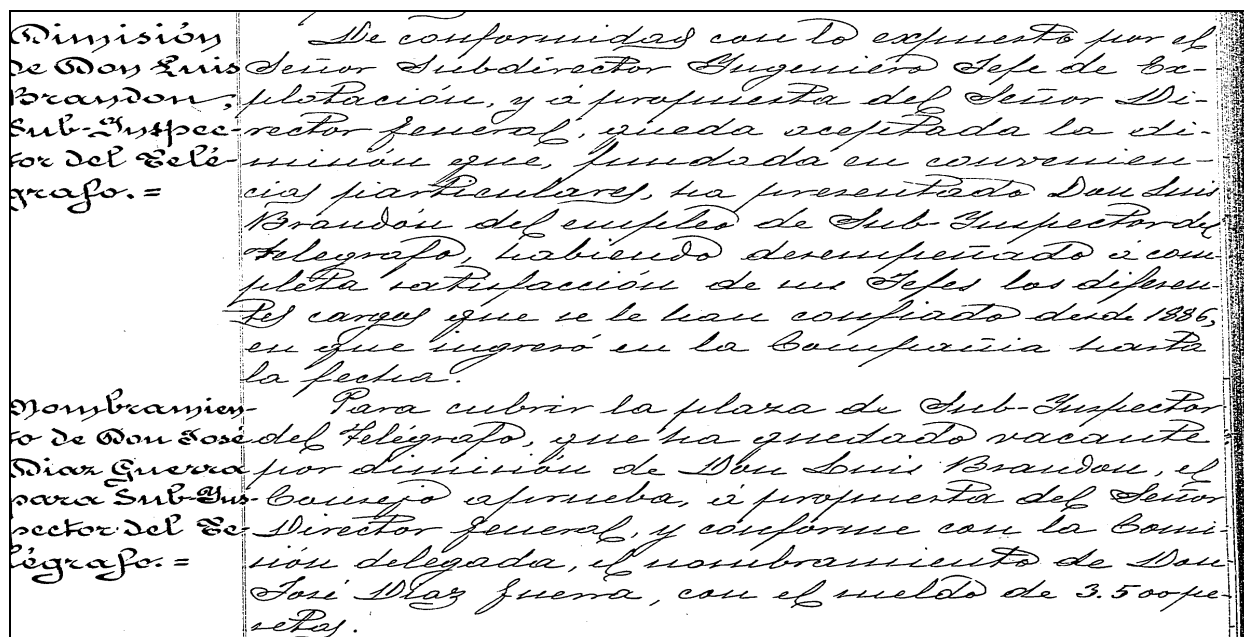 Dimisión
de Don Luis
Brandon,
Sub-Inspec-
tor del Telé-
grafo. =
De conformidad con lo expuesto por el
Señor Subdirector Ingeniero Jefe de Ex-
plotación, y á propuesta del Señor Di-
rector General, queda aceptada la di-
misión que, fundada en convenien-
cias particulares, ha presentado Don Luis
Brandón del empleo de Sub-Inspector del
Telegrafo, habiendo desempeñado á com-
pleta satisfacción de sus Jefes los diferen-
tes cargos que se le han confiado desde 1886,
en que ingresó en la Compañia hasta
la fecha.
Nombramien-
to de Don José
Diaz Guerra
para Sub-Ins-
pector del Te-
légrafo. =
Para cubrir la plaza de Sub-Inspector
del Telégrafo, que ha quedado vacante
por dimisión de Don Luis Brandon, el
Consejo aprueba, á propuesta del Señor
Director General, y conforme con la Comi-
sión delegada, el nombramiento de Don
José Diaz Guerra, con el sueldo de 3.500 pe-
setas.